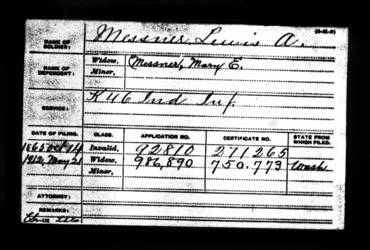 (3-26-2)
NAME OF SOLDIER: Messner, Lewis A.
NAME OF DEPENDENT: Widow, Messner, Mary E.
Minor,
SERVICE: K 46 Ind Inf.
DATE OF FILING. CLASS. APPLICATION NO. CERTIFICATE NO. STATE FROM WHICH FILED.
1865 Oct 14 Invalid, 92810 271265
1912, May 21 Widow, 986,890 750.773 Wash
Minor,
ATTORNEY:
REMARKS: